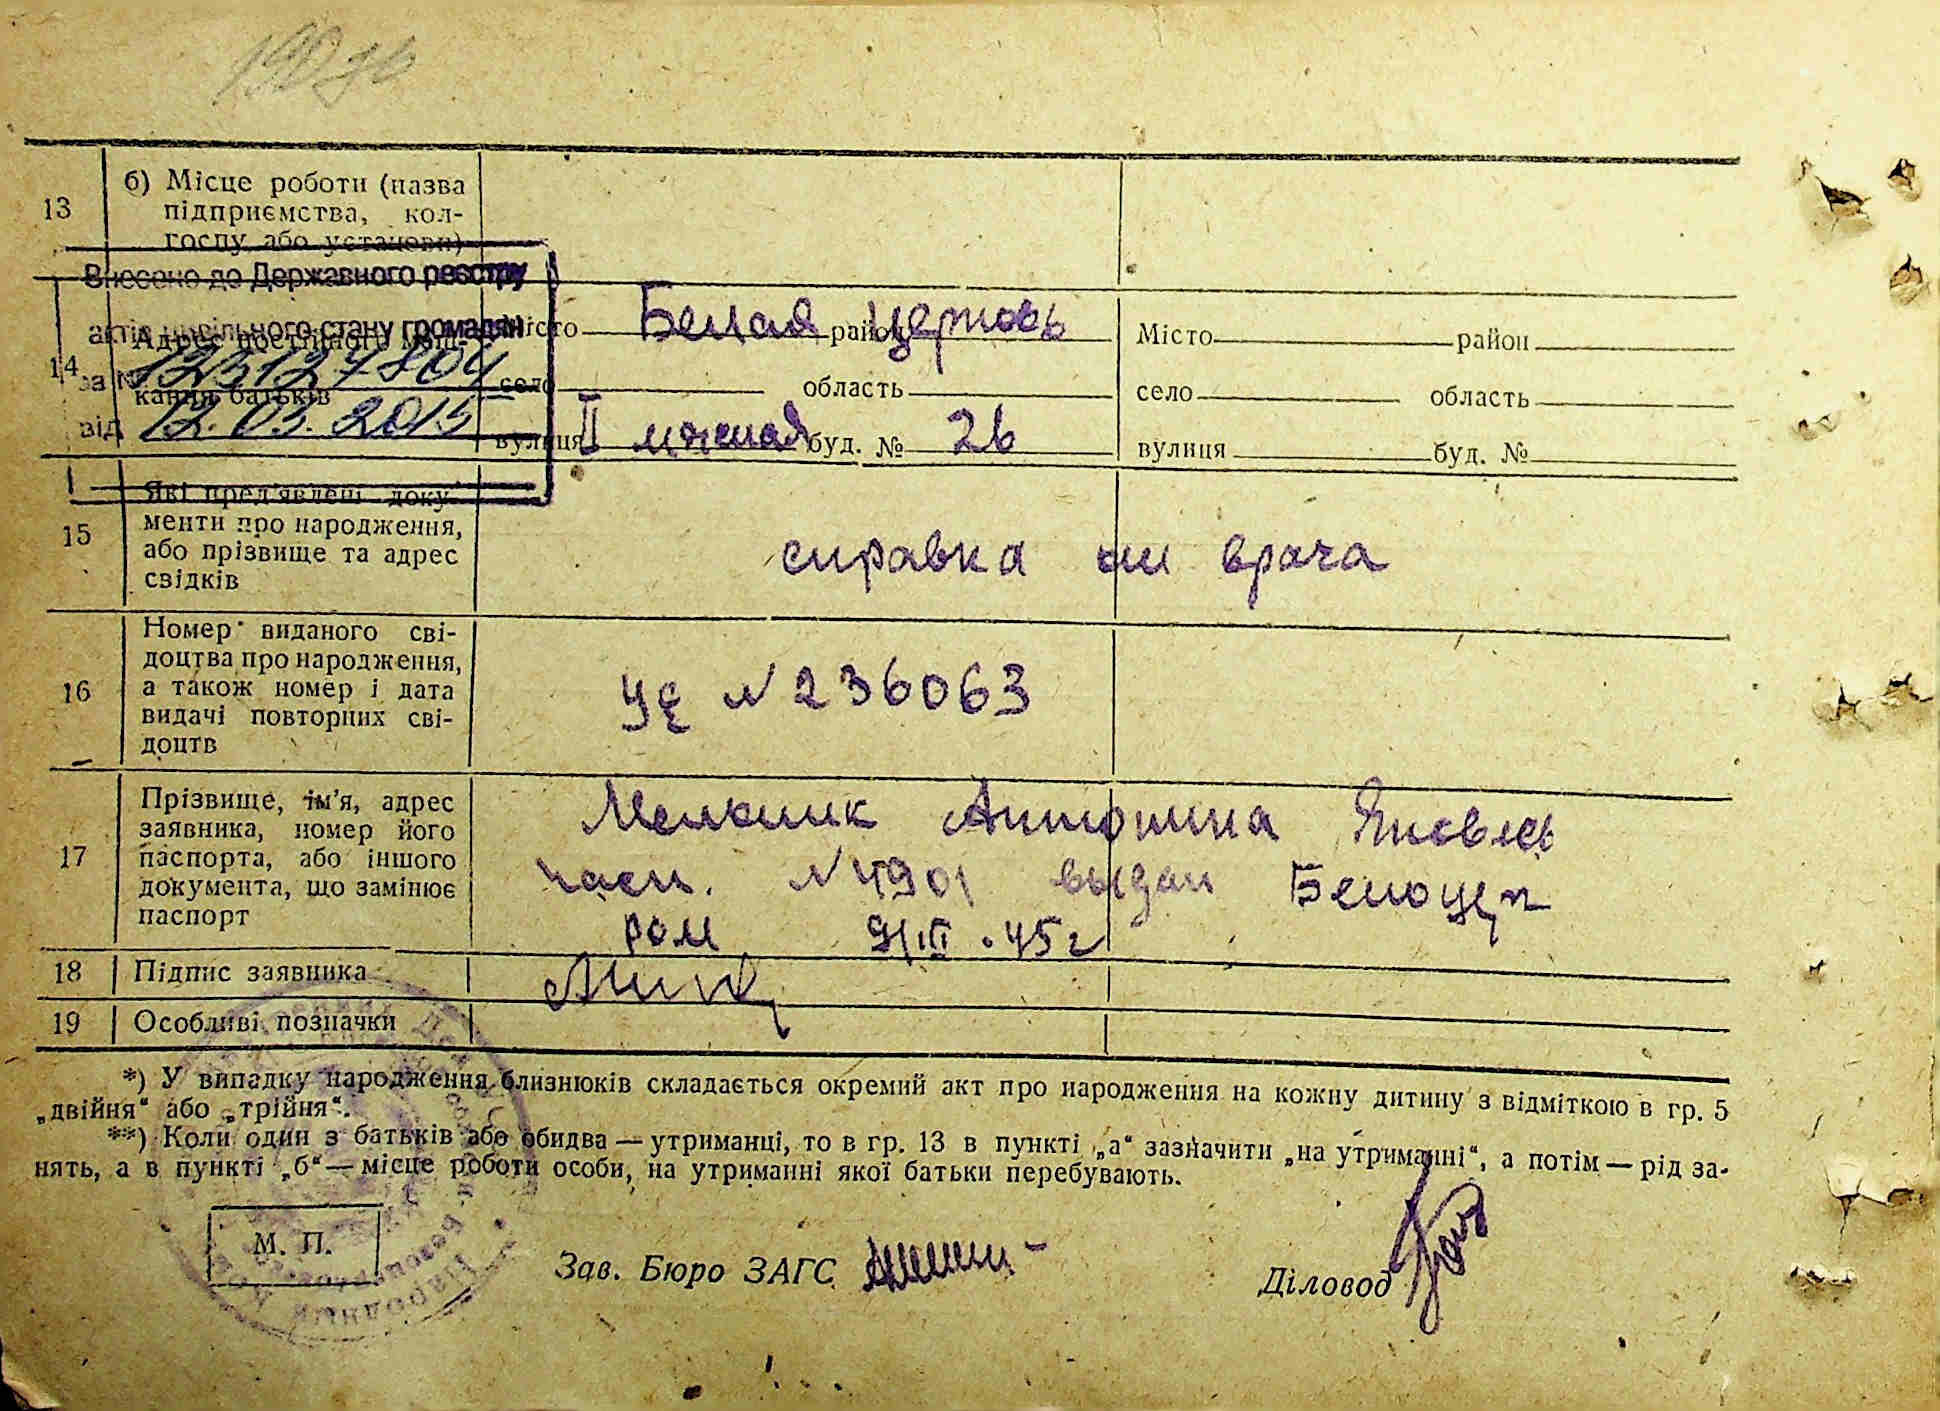 13
б) Місце роботи (назва
підприємства, кол-
госпу або установи)
Внесено до Державного реєстру
актів цивільного стану громадян
за № 123127804
від 12.03.2015
14
Адрес постійного меш-
кання батьків
Місто Белая район Церковь
село область
вулиця ІІ буд. № 26
Місто район
село область
вулиця буд. №
15
Які пред'явлені доку-
менти про народження,
або прізвище та адрес
свідків
справка врача
16
Номер виданого сві-
доцтва про народження,
а також номер і дата
видачі повторних сві-
доцтв
№ 236063
17
Прізвище, ім'я, адрес
заявника, номер його
паспорта, або іншого
документа, що замінює
паспорт
Мельник Антонина Яковлев
№ 4901 выдан Белоцер
ром 9/III.45г
18
Підпис заявника
19
Особливі позначки
*) У випадку народження близнюків складається окремий акт про народження на кожну дитину з відміткою в гр. 5
„двійня“ або „трійня“.
**) Коли один з батьків або обидва — утриманці, то в гр. 13 в пункті „а“ зазначити „на утриманні“, а потім — рід за-
нять, а в пункті „б“ — місце роботи особи, на утриманні якої батьки перебувають.
М. П.
Зав. Бюро ЗАГС
Діловод